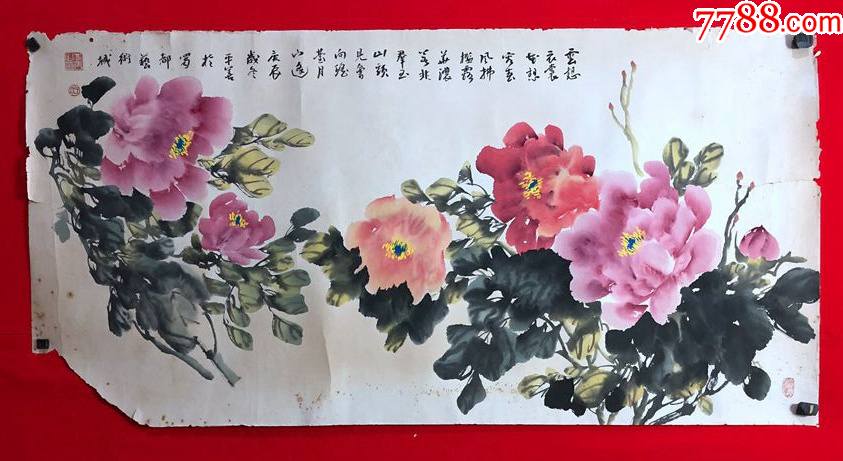 7788.com
雲想
衣裳
花想
容春
風拂
檻露
華濃
若非
群玉
山頭
見會
向瑤
臺月
下逢
庚辰
歲冬
平善
於
蜀
都
藝
術
城